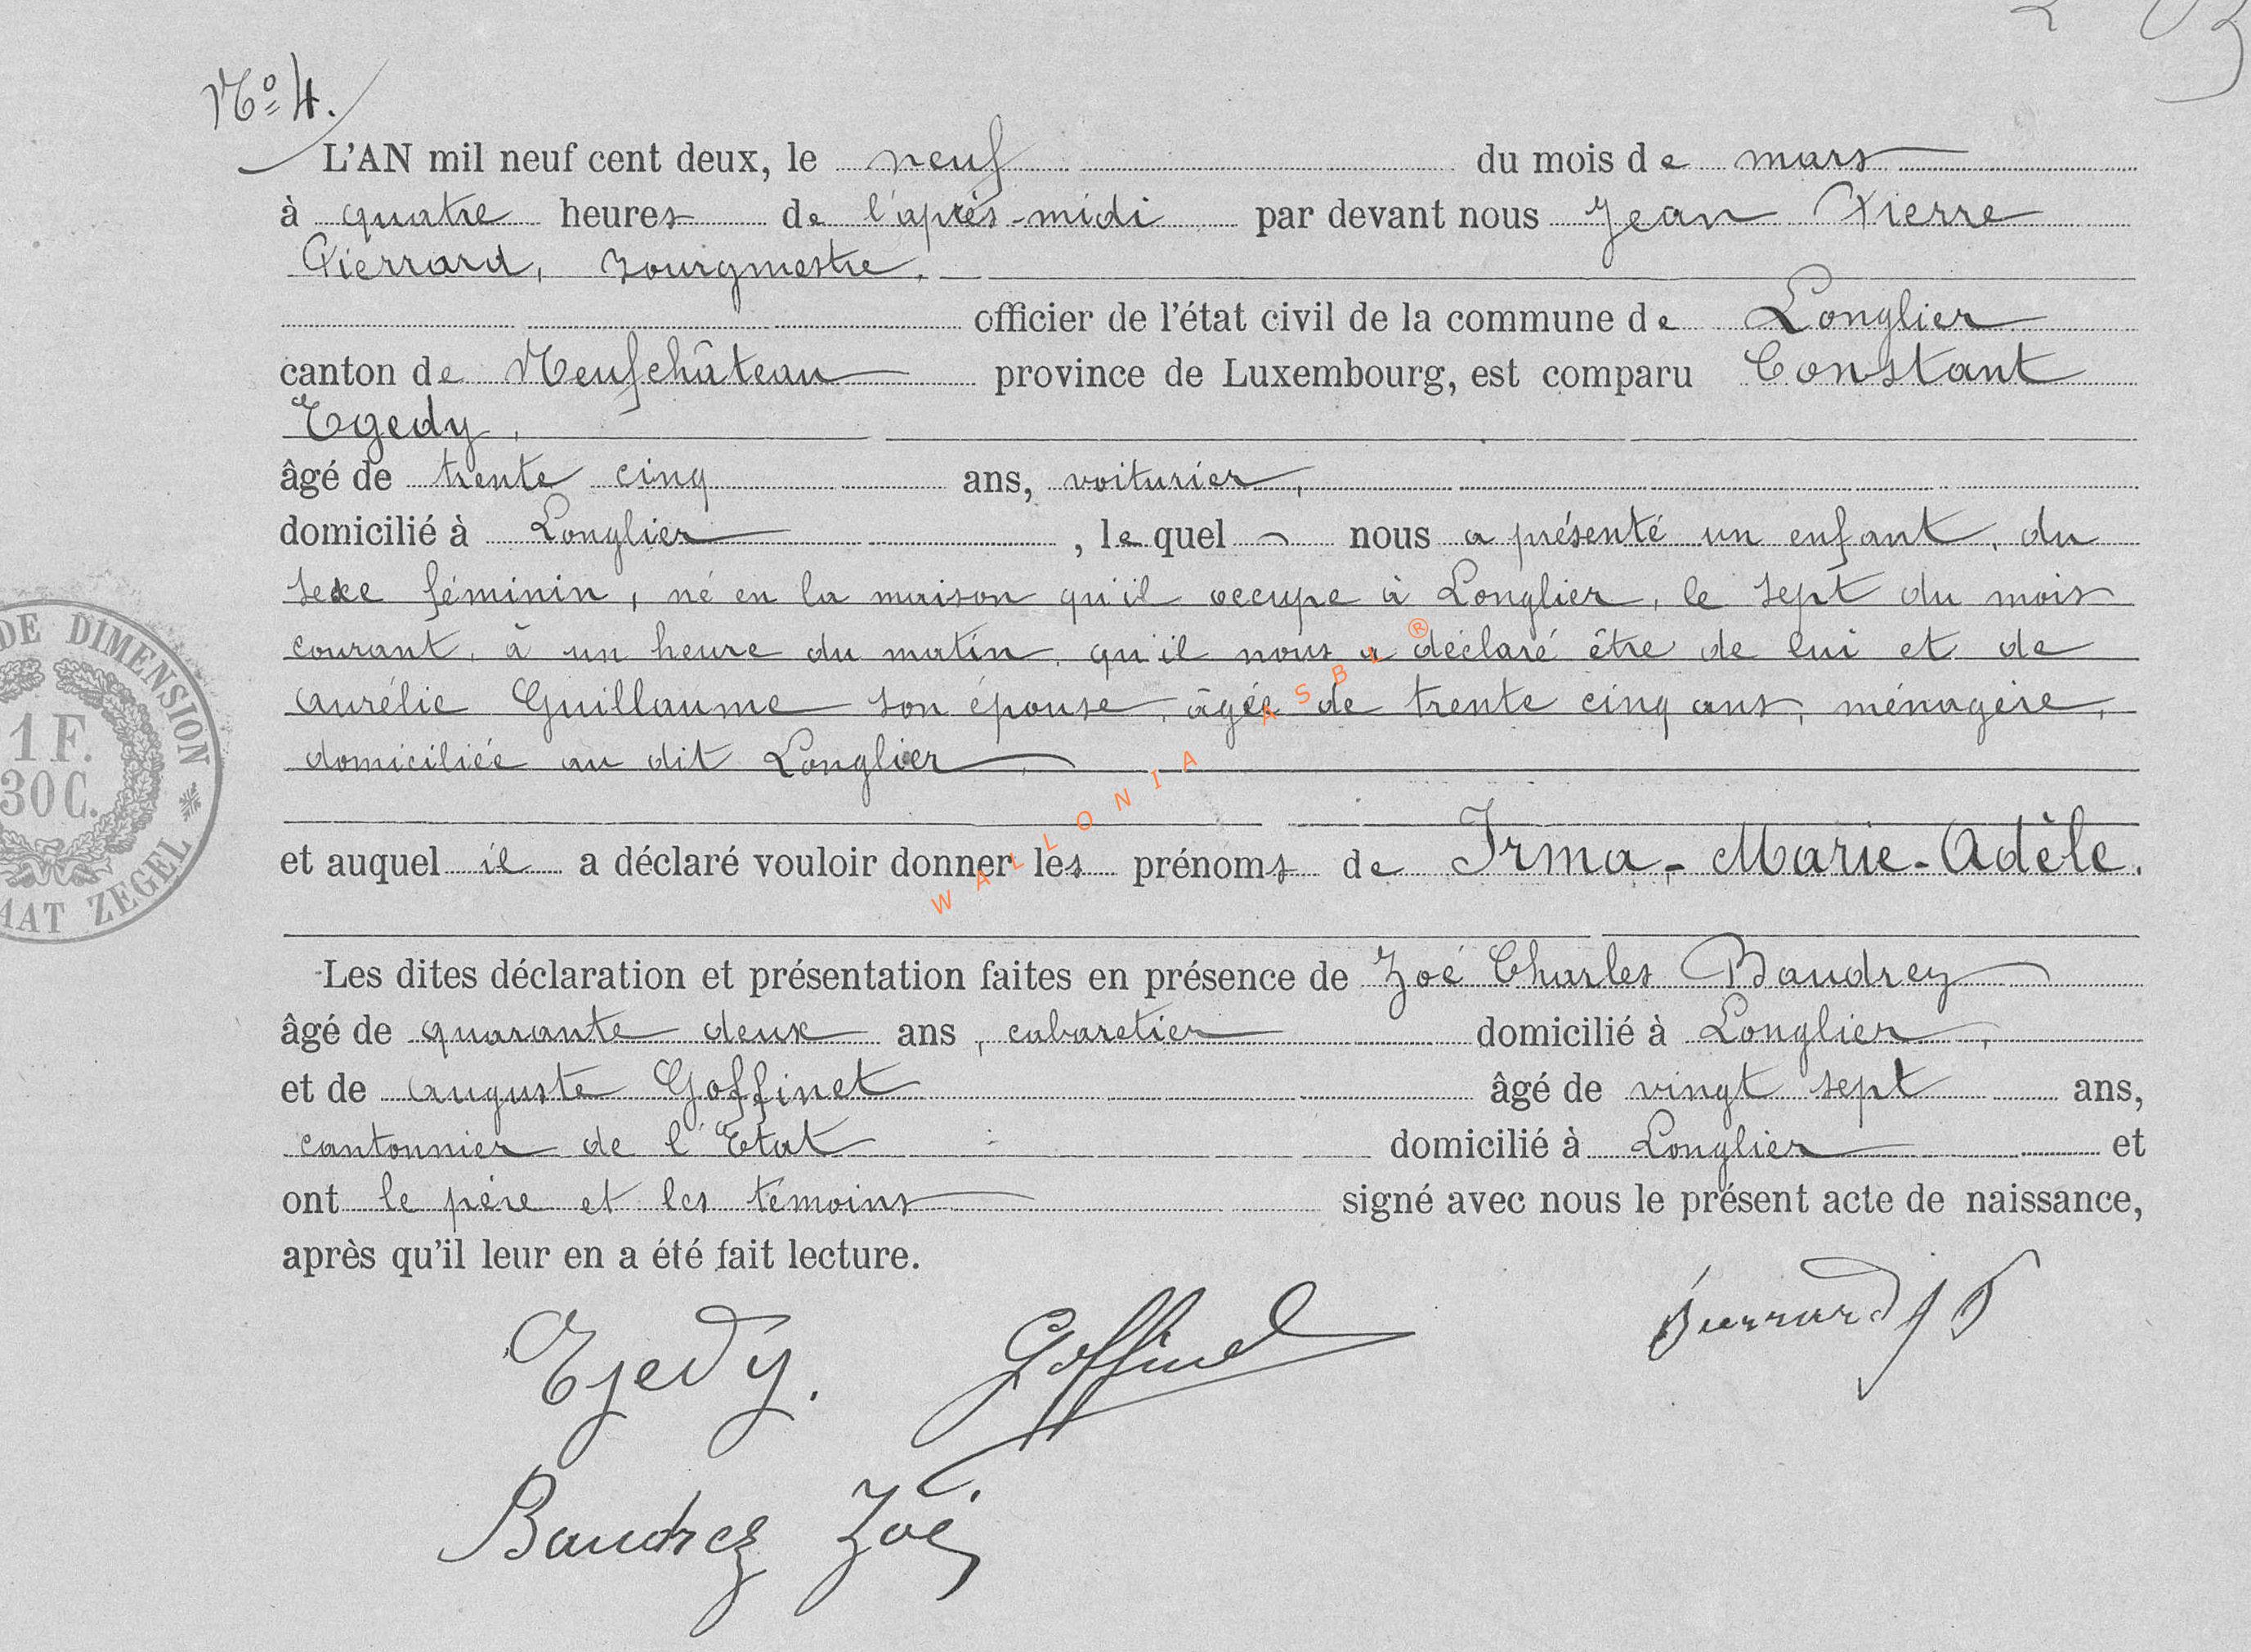 Nº 4.
L'AN mil neuf cent deux, le neuf du mois de mars
à quatre heures de l'après-midi par devant nous Jean Pierre
Pierrard, Bourgmestre,
officier de l'état civil de la commune de Longlier
canton de Neufchâteau province de Luxembourg, est comparu Constant
Egedy,
âgé de trente cinq ans, voiturier,
domicilié à Longlier, lequel nous a présenté un enfant, du
sexe féminin, né en la maison qu'il occupe à Longlier, le sept du mois
courant, à un heure du matin, qu'il nous a déclaré être de lui et de
Aurélie Guillaume son épouse, âgée de trente cinq ans, ménagère,
domiciliée au dit Longlier,
et auquel il a déclaré vouloir donner les prénoms de Irma-Marie-Adèle.
Les dites déclaration et présentation faites en présence de Zoé Charles Baudrez
âgé de quarante deux ans, cabaretier domicilié à Longlier,
et de Auguste Goffinet âgé de vingt sept ans,
cantonnier de l'Etat domicilié à Longlier et
ont le père et les témoins signé avec nous le présent acte de naissance,
après qu'il leur en a été fait lecture.
Egedy. Goffinet Pierrard JP
Baudrez Zoé
DE DIMENSION
1 F.
30 C.
ZEGEL
WALLONIA ASBL ®